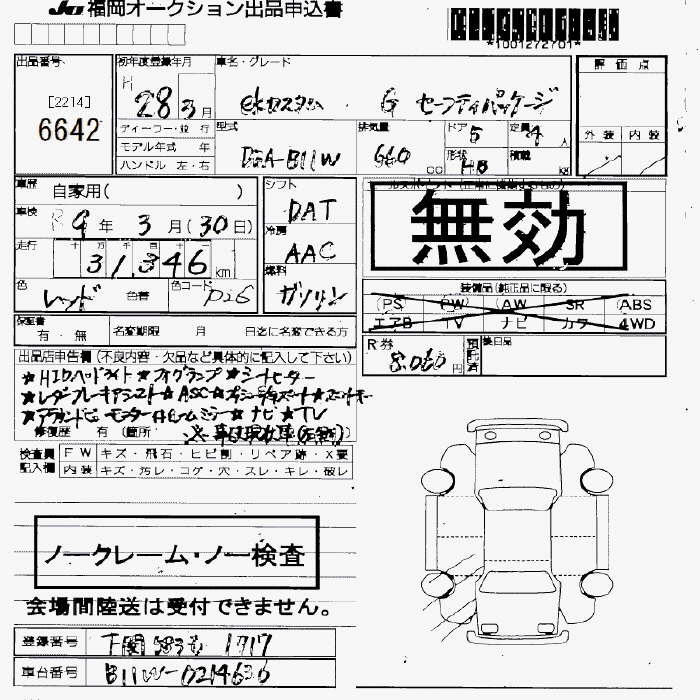 JU 福岡オークション出品申込書
*1001272701*
出品番号
[2214]
6642
初年度登録年月
H 28 3月
車名・グレード
ekカスタム G セーフティパッケージ
評価点
外装 内装
ディーラー・並行
モデル年式 年
ハンドル 左・右
型式
DBA-B11W
排気量
660 cc
ドア 5
定員 4 人
形状 HB
積載 kg
車歴 自家用( )
車検 R 9年 3月(30日)
走行 十 万 千 百 十
31,346 km
色 レッド 色替 色コード P26
シフト
DAT
冷房
AAC
燃料
ガソリン
無効
装備品(純正品に限る)
PS PW AW SR ABS
エアB TV ナビ カワ 4WD
保証書
有・無
名変期限 月 日迄に名変できる方
R券 8.060円
預託済
後日品
出品店申告欄(不良内容・欠品など具体的に記入して下さい)
★HIDヘッドライト★フォグランプ★シートヒーター
★レーダーブレーキアシスト★ASC
★アラウンドビューモニター付ルームミラー★ナビ★TV
修復歴 有 (箇所 ※事故現状車
検査員記入欄
FW キズ・飛石・ヒビ割・リペア跡・X要
内装 キズ・汚レ・コゲ・穴・スレ・キレ・破レ
ノークレーム・ノー検査
会場間陸送は受付できません。
登録番号 下関 583 1717
車台番号 B11W-0214636